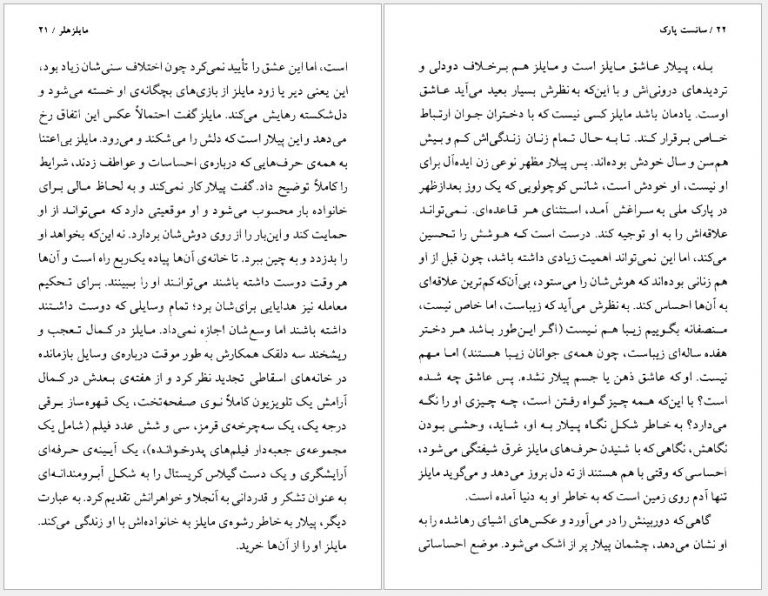 مایلزهلر / ۲۱
است، اما این عشق را تأیید نمی‌کرد چون اختلاف سنی‌شان زیاد بود،
این یعنی دیر یا زود مایلز از بازی‌های بچگانه‌ی او خسته می‌شود و
دل‌شکسته رهایش می‌کند. مایلزگفت احتمالاً عکس این اتفاق رخ
می‌دهد و این پیلار است که دلش را می‌شکند و می‌رود. مایلز بی‌اعتنا
به همه‌ی حرف‌هایی که درباره‌ی احساسات و عواطف زدند، شرایط
را کاملاً توضیح داد. گفت پیلار کار نمی‌کند و به لحاظ مالی برای
خانواده بار محسوب می‌شود و او موقعیتی دارد که می‌تواند از او
حمایت کند و این‌بار را از روی دوش‌شان بردارد. نه این‌که بخواهد او
را بدزدد و به چین ببرد. تا خانه‌ی آن‌ها پیاده یک‌ربع راه است و آن‌ها
هر وقت دوست داشته باشند می‌توانند او را ببینند. برای تحکیم
معامله نیز هدایایی برای‌شان برد؛ تمام وسایلی که دوست داشتند
داشته باشند اما وسع‌شان اجازه نمی‌داد. مایلز در کمال تعجب و
ریشخند سه دلقک همکارش به طور موقت درباره‌ی وسایل بازمانده
در خانه‌های اسقاطی تجدید نظر کرد و از هفته‌ی بعدش در کمال
آرامش یک تلویزیون کاملاً نوی صفحه‌تخت، یک قهوه‌ساز برقی
درجه یک، یک سه‌چرخه‌ی قرمز، سی و شش عدد فیلم (شامل یک
مجموعه‌ی جعبه‌دار فیلم‌های پدرخوانده)، یک آیینه‌ی حرفه‌ای
آرایشگری و یک دست گیلاس کریستال را به شکل آبرومندانه‌ای
به عنوان تشکر و قدردانی به آنجلا و خواهرانش تقدیم‌کرد. به عبارت
دیگر، پیلار به خاطر رشوه‌ی مایلز به خانواده‌اش با او زندگی می‌کند.
مایلز او را از آن‌ها خرید.
۲۲ / سانست پارک
بله، پیلار عاشق مایلز است و مایلز هم برخلاف دودلی و
تردیدهای درونی‌اش و با این‌که به‌نظرش بسیار بعید می‌آید عاشق
اوست. یادمان باشد مایلز کسی نیست که با دختران جوان ارتباط
خاص برقرار کند. تا به حال تمام زنان زندگی‌اش کم و بیش
هم‌سن و سال خودش بوده‌اند. پس پیلار مظهر نوعی زن ایده‌آل برای
او نیست، او خودش است، شانس کوچولویی که یک روز بعدازظهر
در پارک ملی به سراغش آمد، استثنای هر قاعده‌ای. نمی‌تواند
علاقه‌اش را به او توجیه کند. درست است که هوشش را تحسین
می‌کند، اما این نمی‌تواند اهمیت زیادی داشته باشد، چون قبل از او
هم زنانی بوده‌اند که هوش‌شان را می‌ستود، بی‌آن‌که کم‌ترین علاقه‌ای
به آن‌ها احساس کند. به نظرش می‌آید که زیباست، اما خاص نیست،
منصفانه بگوییم زیبا هم نیست (اگر این‌طور باشد هر دختر
هفده ساله‌ای زیباست، چون همه‌ی جوانان زیبا هستند) اما مهم
نیست. او که عاشق ذهن یا جسم پیلار نشده. پس عاشق چه شده
است؟ با این‌که همه چیز گواه رفتن است، چه چیزی او را نگه
می‌دارد؟ به خاطر شکل نگاه پیلار به او، شاید، وحشی بودن
نگاهش، نگاهی که با شنیدن حرف‌های مایلز غرق شیفتگی می‌شود،
احساسی که وقتی با هم هستند از ته دل بروز می‌دهد و می‌گوید مایلز
تنها آدم روی زمین است که به خاطر او به دنیا آمده است.
گاهی‌که دوربینش را در می‌آورد و عکس‌های اشیای رهاشده را به
او نشان می‌دهد، چشمان پیلار پر از اشک می‌شود. موضع احساساتی